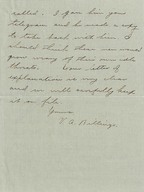 called. I gave him your
telegram and he made a copy
to take back with him. I
should think these men would
grow weary of their own idle
threats. Your letter of
explanation is very clear
and we will carefully keep
it on file.
Yours
V. G. Billings